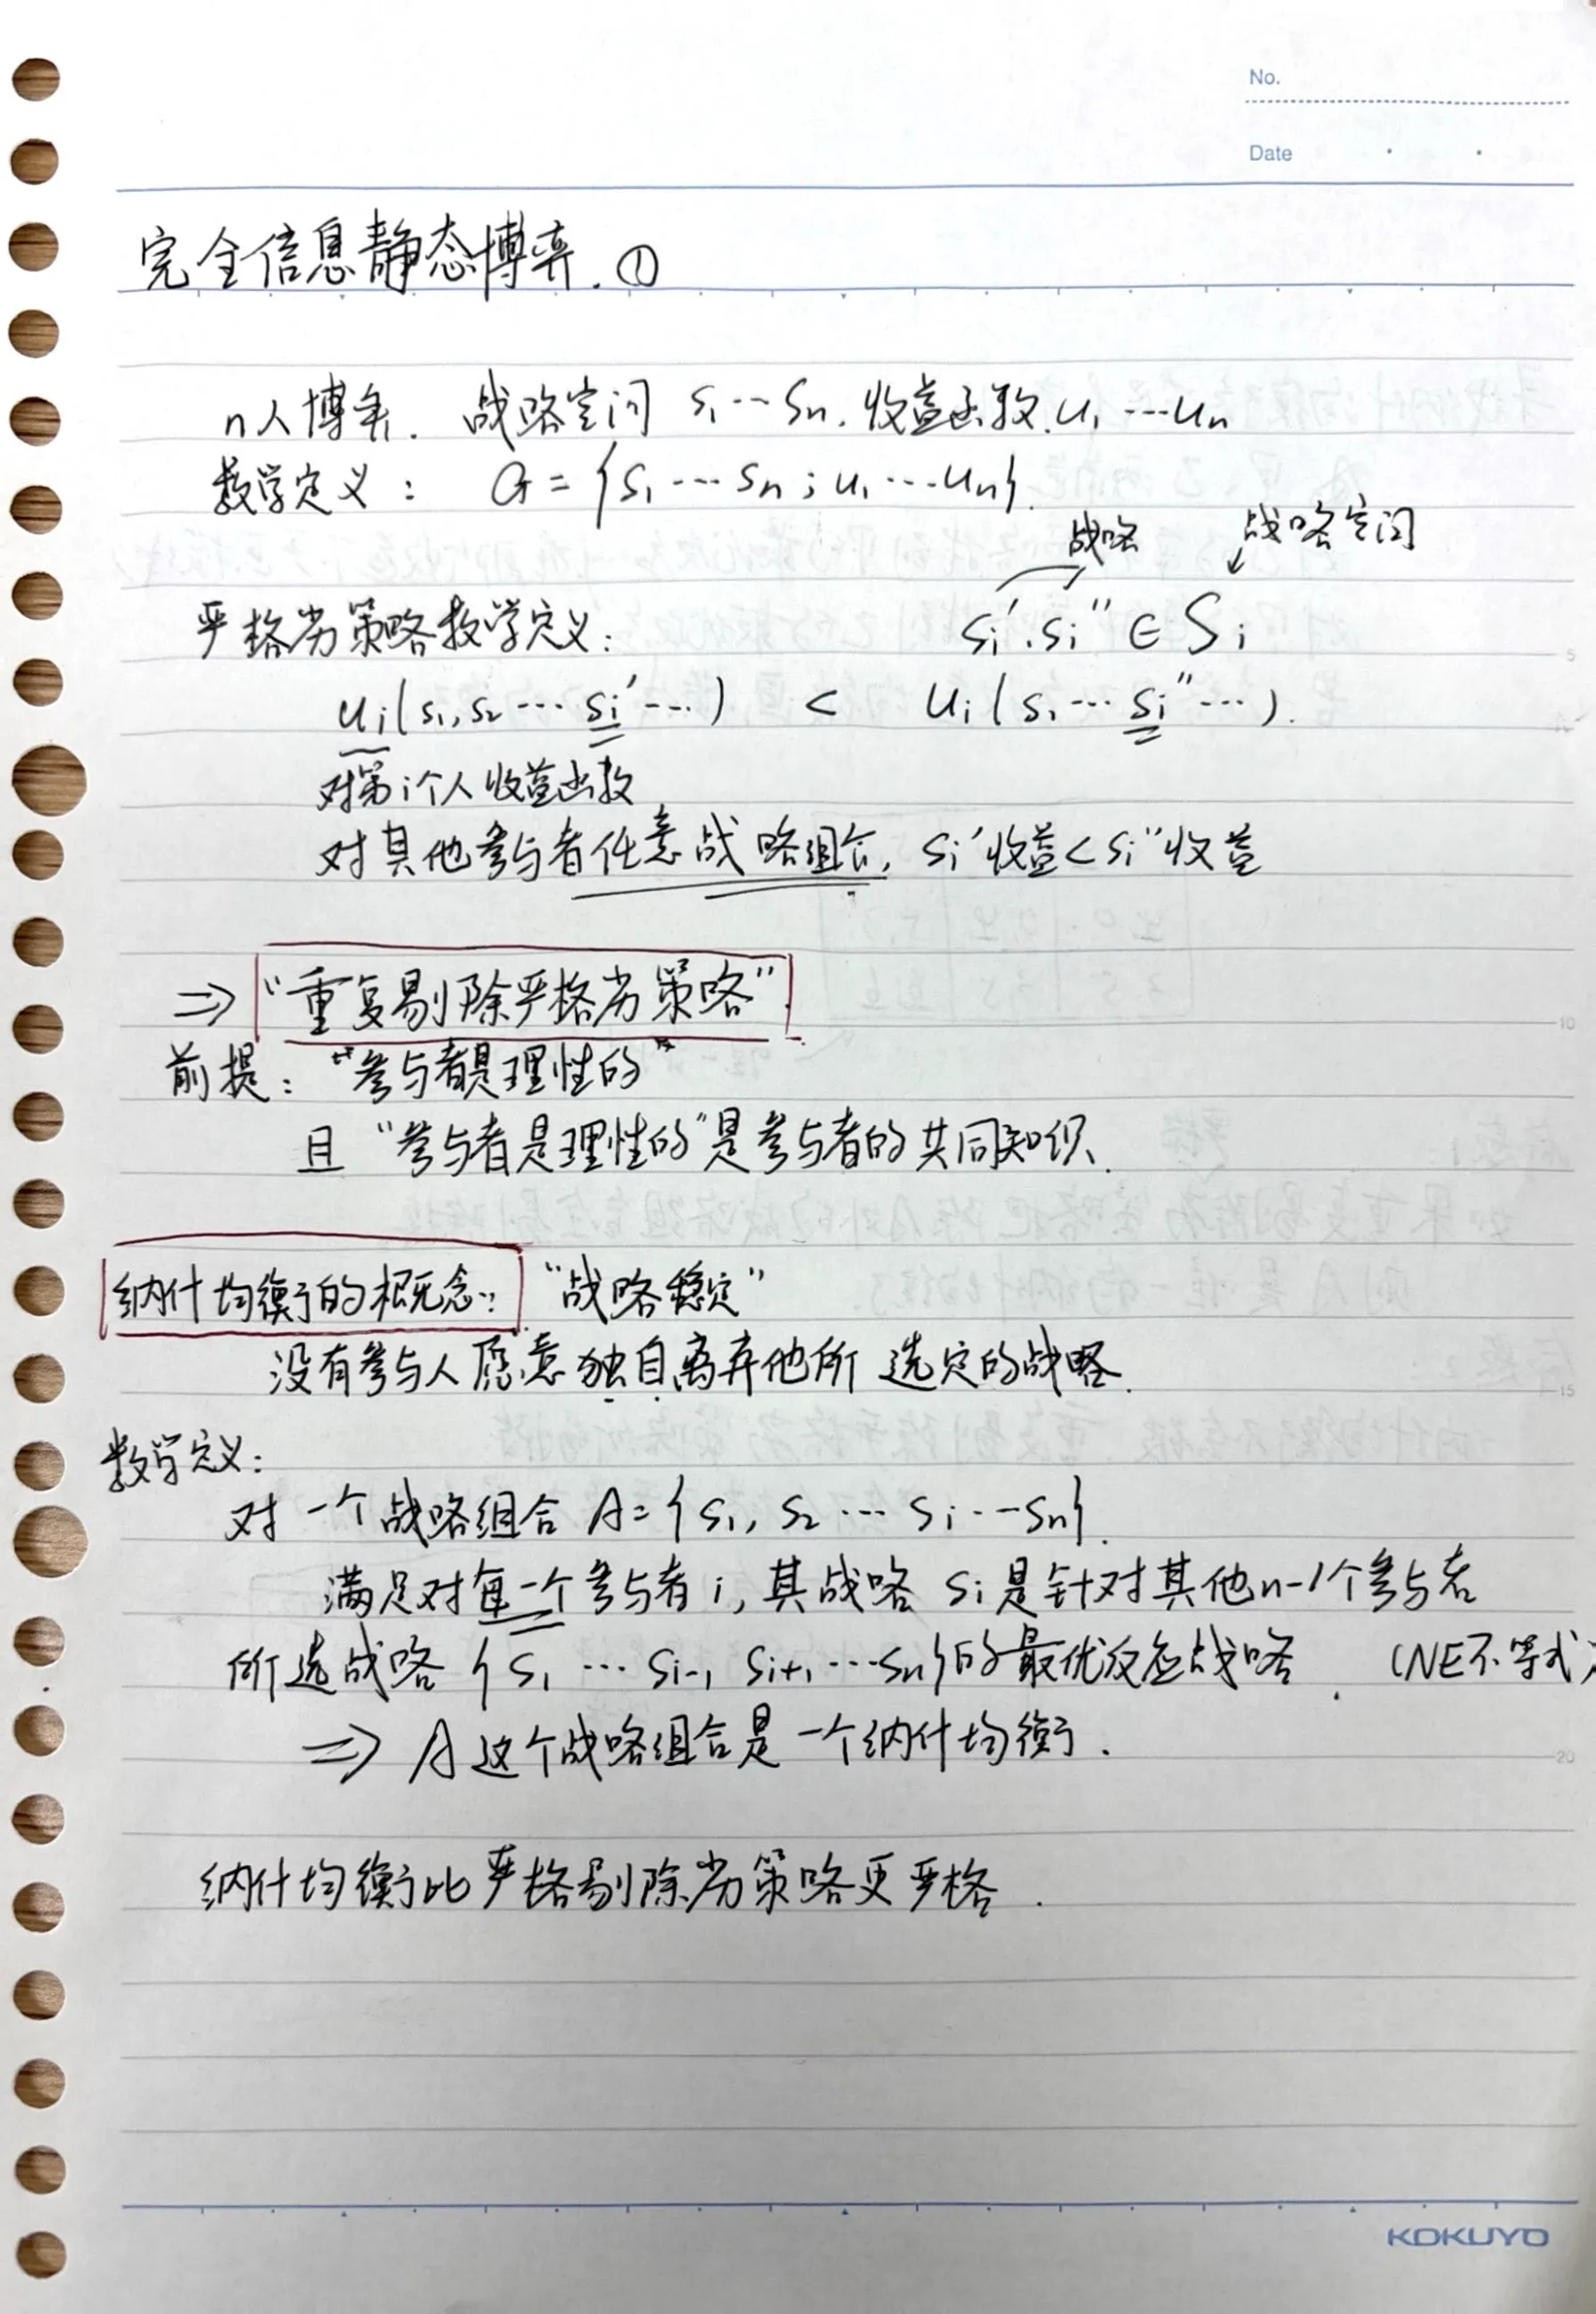 No.
Date
完全信息静态博弈.①
n人博弈. 战略空间 s₁…Sn. 收益函数. u₁…un
数学定义： G = {s₁…sn ; u₁…un}.
战略 战略空间
严格劣策略数学定义： si′.si″ ∈ Si
ui(s₁,s₂…si′…) < ui(s₁…si″…).
对第i个人收益函数
对其他参与者任意战略组合, si′收益<si″收益
⇒ “重复剔除严格劣策略”
前提：“参与者是理性的”
且“参与者是理性的”是参与者的共同知识.
纳什均衡的概念： “战略稳定”
没有参与人愿意独自离弃他所选定的战略.
数学定义：
对一个战略组合 A={s₁, s₂…si…sn}.
满足对每一个参与者i, 其战略 si是针对其他n-1个参与者
所选战略{s₁…si-₁ si+₁…sn}的最优反应战略. (NE不等式)
⇒ A这个战略组合是一个纳什均衡.
纳什均衡比严格剔除劣策略更严格.
5
10
15
20
KOKUYO